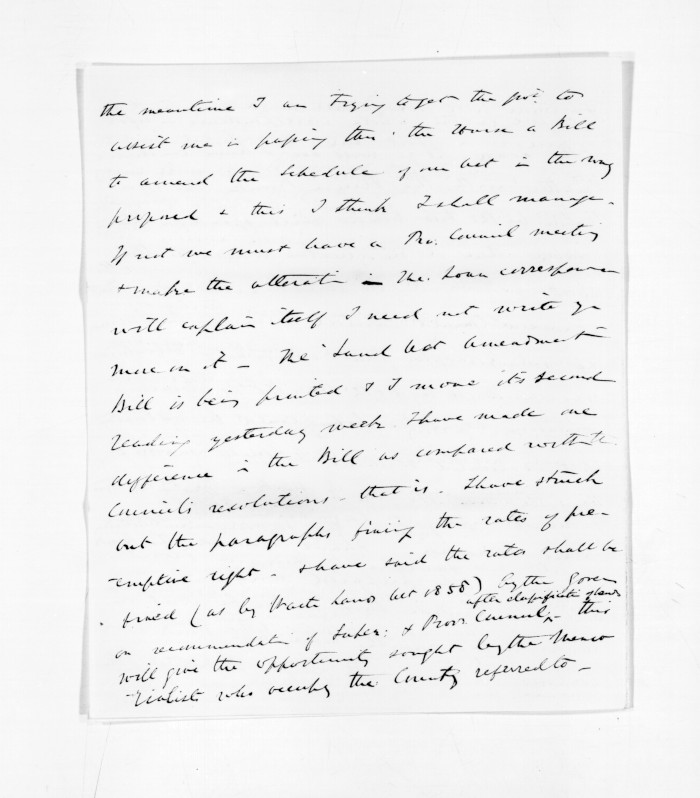 the meantime I am trying to get the govt to
assist me in passing thro' the House a Bill
to amend the Schedule of our Act in the way
proposed & this I think I shall manage.
If not we must have a Pro. Council meeting
& make the alterati in the. Loan correspon
will explain itself I need not write yr
more on it - The Land Act Amendment
Bill is being printed & I move its second
reading yesterday week. I have made one
difference in the Bill as compared with the
Council's resolutions - that is. I have struck
out the paragraphs fixing the rates of pre-
-emptive right - & have said the rates shall be
fixed (as by Waste Lands Act 1858) by the Govern
after classificati of lands
on recommendati of Super: & Provl Council; - this
will give the opportunity sought by the Memo
-rialists who occupy the County referred to -